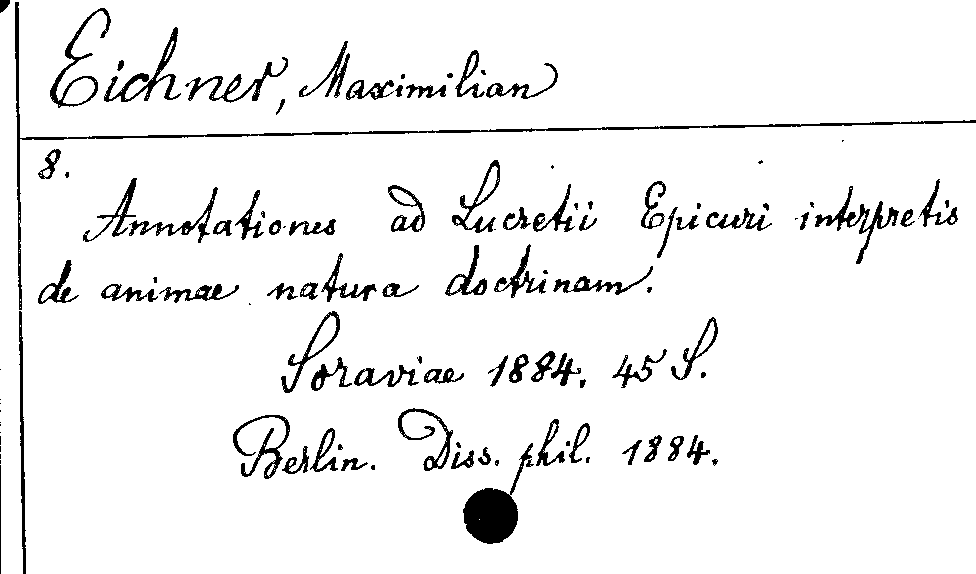 Eichner, Maximilian
8.
Annotationes ad Lucretii Epicuri interpretis
de animae natura doctrinam.
Soraviae 1884. 45 S.
Berlin. Diss. phil. 1884.